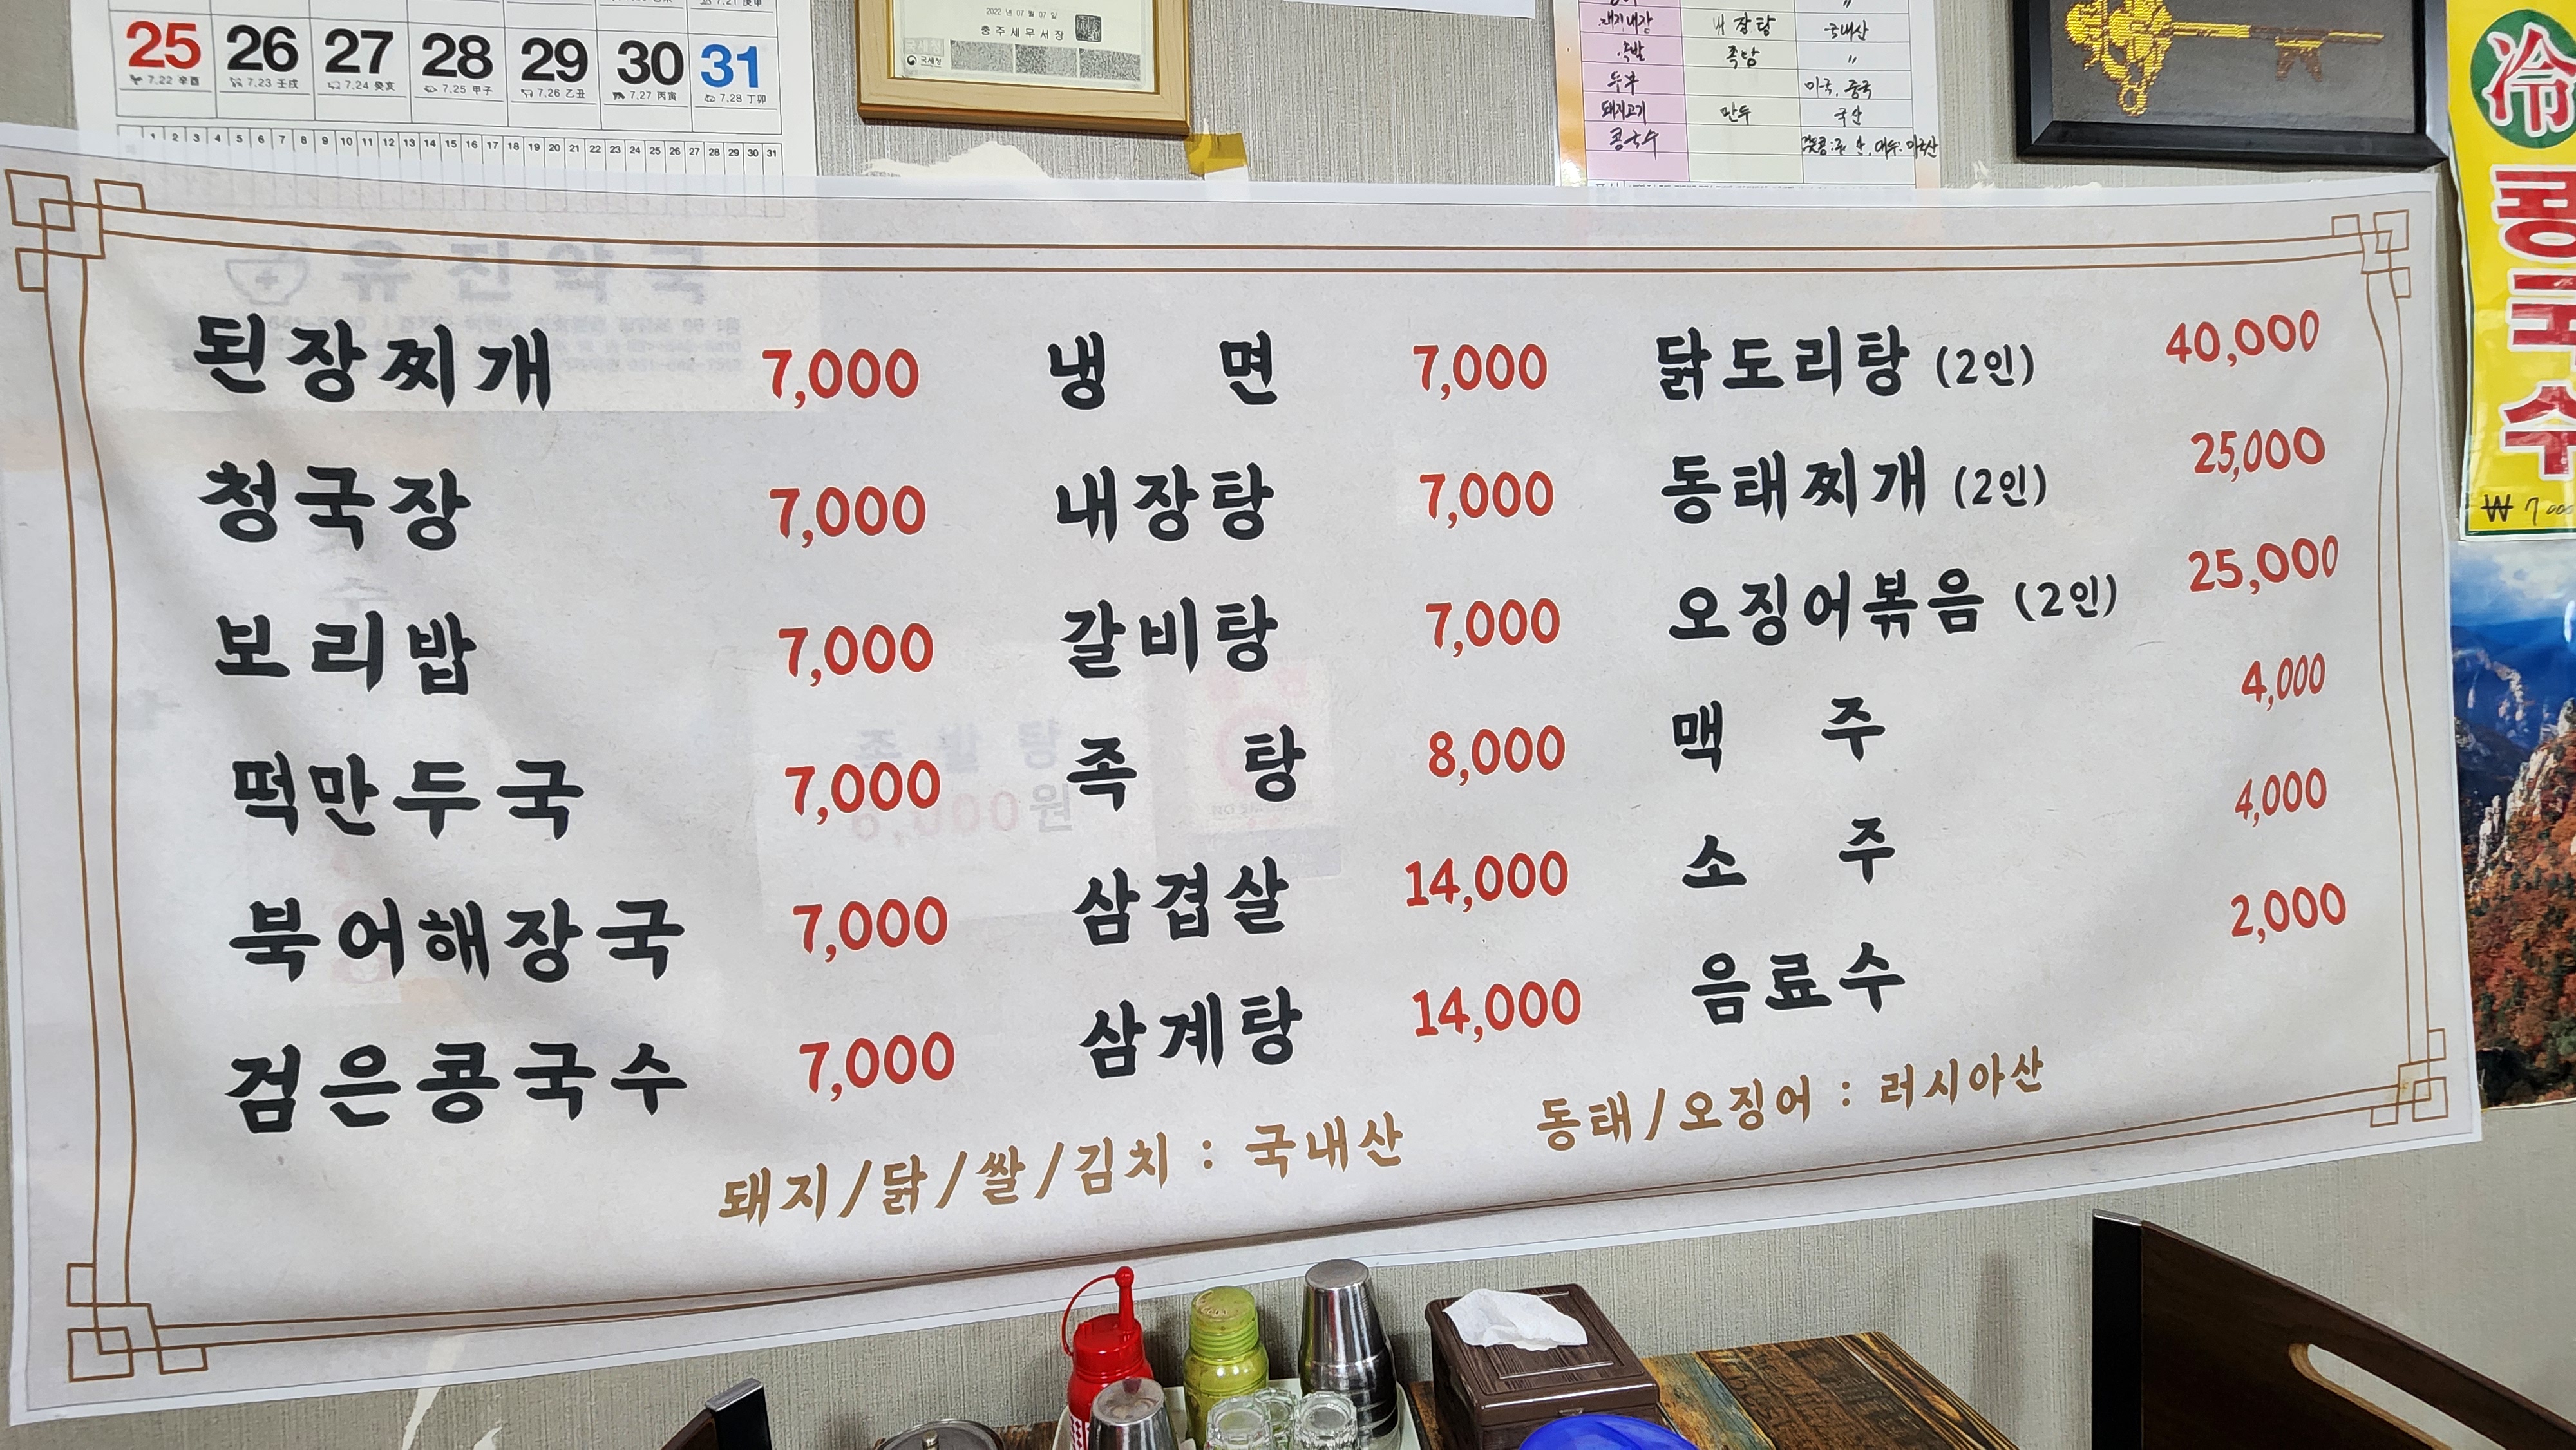 25 26 27 28 29 30 31
7.22 辛酉 7.23 壬戌 7.24 癸亥 7.25 甲子 7.26 乙丑 7.27 丙寅 7.28 丁卯
1 2 3 4 5 6 7 8 9 10 11 12 13 14 15 16 17 18 19 20 21 22 23 24 25 26 27 28 29 30 31
2022 년 07 월 07 일
충주세무서장
국세청
돼지내장 내장탕 국내산
족발 족탕 〃
두부 미국, 중국
돼지고기 만두 국산
콩국수
冷
콩국수
₩ 7000
유진약국
된장찌개 7,000
청국장 7,000
보리밥 7,000
떡만두국 7,000
북어해장국 7,000
검은콩국수 7,000
냉면 7,000
내장탕 7,000
갈비탕 7,000
족탕 8,000
삼겹살 14,000
삼계탕 14,000
닭도리탕 (2인) 40,000
동태찌개 (2인) 25,000
오징어볶음 (2인) 25,000
맥주 4,000
소주 4,000
음료수 2,000
돼지/닭/쌀/김치 : 국내산 동태/오징어 : 러시아산